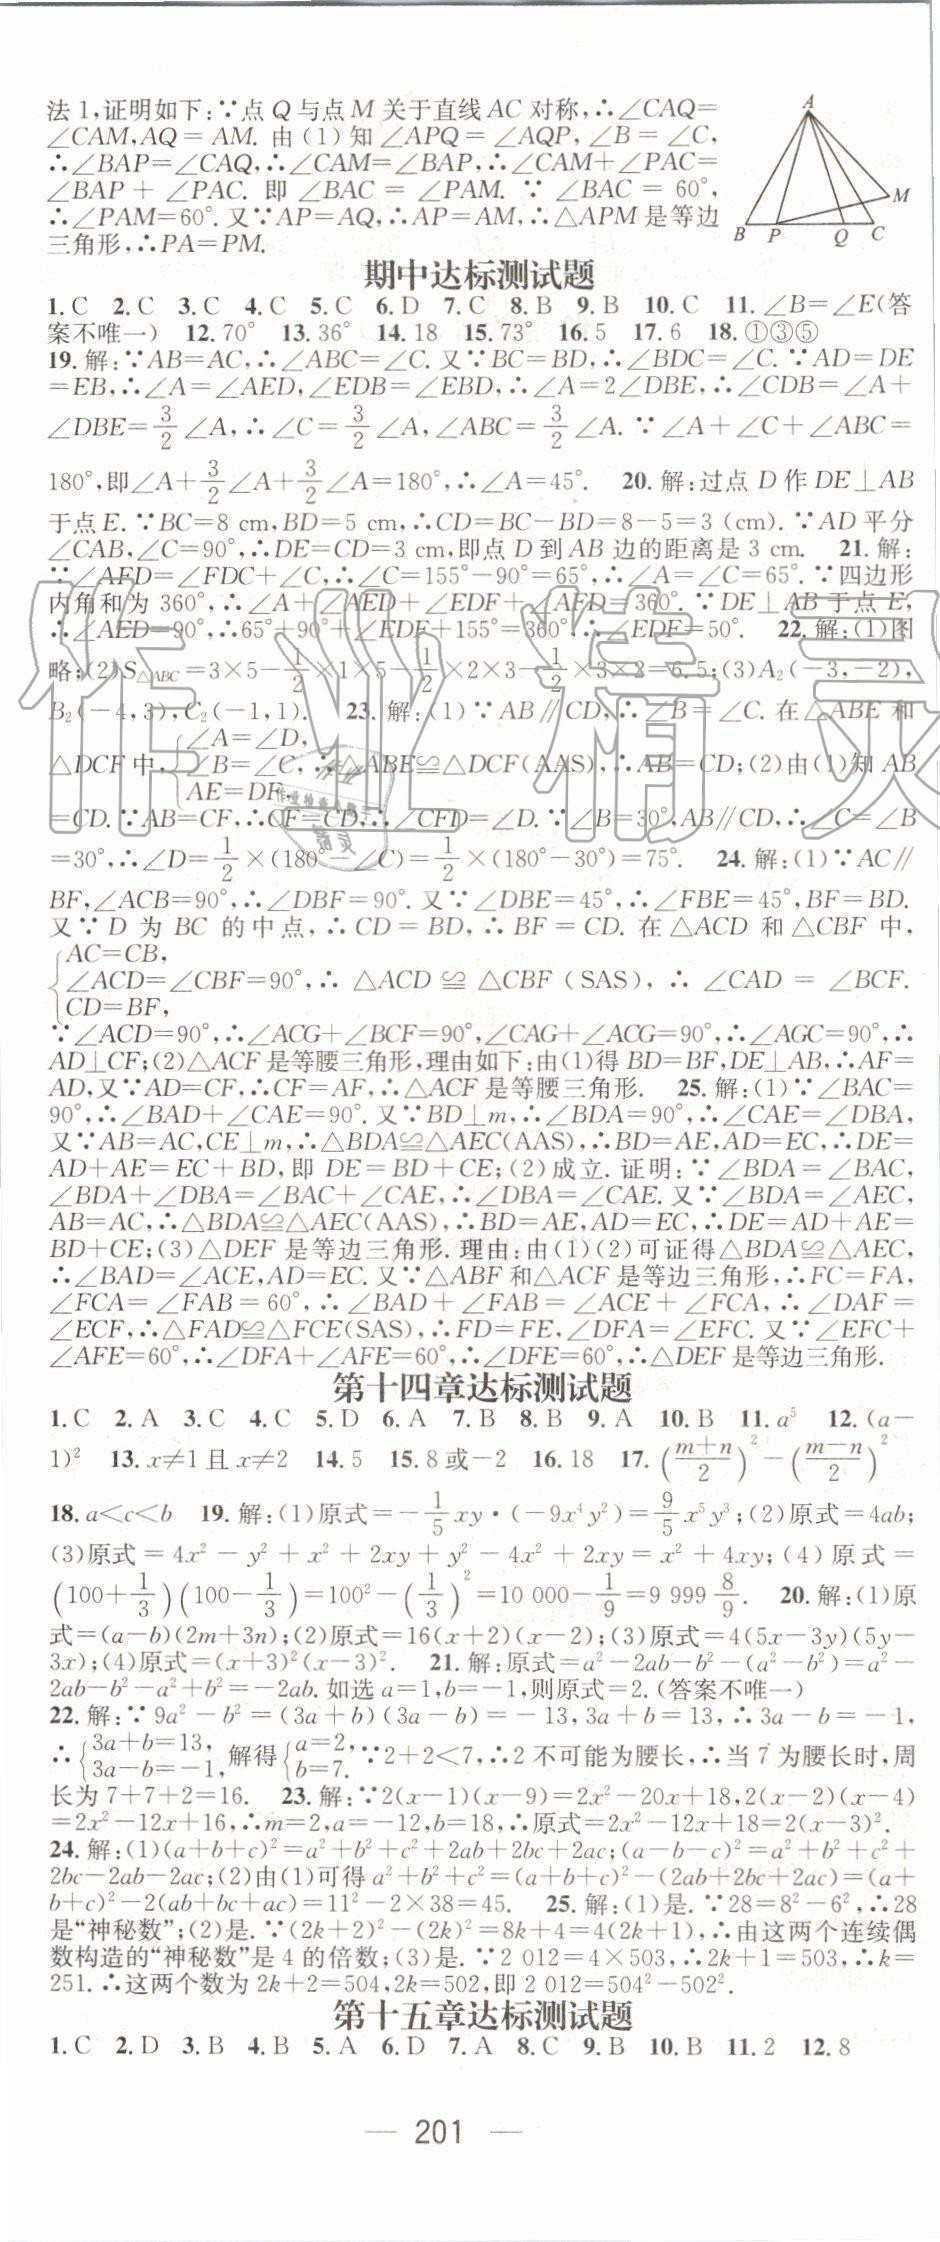 法1,证明如下:∵点Q与点M关于直线AC对称,∴∠CAQ=
∠CAM,AQ=AM. 由(1)知∠APQ=∠AQP,∠B=∠C,
∴∠BAP=∠CAQ,∴∠CAM=∠BAP,∴∠CAM+∠PAC=
∠BAP+∠PAC. 即∠BAC=∠PAM. ∵∠BAC=60°,
∴∠PAM=60°. 又∵AP=AQ,∴AP=AM,∴△APM是等边
三角形,∴PA=PM.
A
M
B P Q C
期中达标测试题
1. C 2. C 3. C 4. C 5. C 6. D 7. C 8. B 9. B 10. C 11. ∠B=∠E(答
案不唯一) 12. 70° 13. 36° 14. 18 15. 73° 16. 5 17. 6 18. ①③⑤
19. 解:∵AB=AC,∴∠ABC=∠C. 又∵BC=BD,∴∠BDC=∠C. ∵AD=DE
=EB,∴∠A=∠AED,∠EDB=∠EBD,∴∠A=2∠DBE,∴∠CDB=∠A+
∠DBE=3/2∠A,∴∠C=3/2∠A,∠ABC=3/2∠A. ∵∠A+∠C+∠ABC=
180°,即∠A+3/2∠A+3/2∠A=180°,∴∠A=45°. 20. 解:过点D作DE⊥AB
于点E. ∵BC=8 cm,BD=5 cm,∴CD=BC-BD=8-5=3 (cm). ∵AD平分
∠CAB,∠C=90°,∴DE=CD=3 cm,即点D到AB边的距离是3 cm. 21. 解:
∵∠AFD=∠FDC+∠C,∴∠C=155°-90°=65°,∴∠A=∠C=65°. ∵四边形
内角和为360°,∴∠A+∠AED+∠EDF+∠AFD=360°. ∵DE⊥AB于点E,
∴∠AED=90°,∴65°+90°+∠EDF+155°=360°,∴∠EDF=50°. 22. 解:(1)图
略;(2)S△ABC=3×5-1/2×1×5-1/2×2×3-1/2×3×2=6.5;(3)A₂(-3,-2),
B₂(-4,3),C₂(-1,1). 23. 解:(1)∵AB∥CD,∴∠B=∠C. 在△ABE和
△DCF中,{∠A=∠D, ∠B=∠C, AE=DF, ∴△ABE≌△DCF(AAS),∴AB=CD;(2)由(1)知AB
=CD. ∵AB=CF,∴CF=CD,∴∠CFD=∠D. ∵∠B=30°,AB∥CD,∴∠C=∠B
=30°,∴∠D=1/2×(180°-∠C)=1/2×(180°-30°)=75°. 24. 解:(1)∵AC∥
BF,∠ACB=90°,∴∠DBF=90°. 又∵∠DBE=45°,∴∠FBE=45°,BF=BD.
又∵D为BC的中点,∴CD=BD,∴BF=CD. 在△ACD和△CBF中,
{AC=CB,
∠ACD=∠CBF=90°, ∴△ACD≌△CBF(SAS),∴∠CAD=∠BCF.
CD=BF,
∵∠ACD=90°,∴∠ACG+∠BCF=90°,∠CAG+∠ACG=90°,∴∠AGC=90°,∴
AD⊥CF;(2)△ACF是等腰三角形,理由如下:由(1)得BD=BF,DE⊥AB,∴AF=
AD,又∵AD=CF,∴CF=AF,∴△ACF是等腰三角形. 25. 解:(1)∵∠BAC=
90°,∴∠BAD+∠CAE=90°. 又∵BD⊥m,∴∠BDA=90°,∴∠CAE=∠DBA,
又∵AB=AC,CE⊥m,∴△BDA≌△AEC(AAS),∴BD=AE,AD=EC,∴DE=
AD+AE=EC+BD,即DE=BD+CE;(2)成立. 证明:∵∠BDA=∠BAC,
∠BDA+∠DBA=∠BAC+∠CAE,∴∠DBA=∠CAE. 又∵∠BDA=∠AEC,
AB=AC,∴△BDA≌△AEC(AAS),∴BD=AE,AD=EC,∴DE=AD+AE=
BD+CE;(3)△DEF是等边三角形. 理由:由(1)(2)可证得△BDA≌△AEC,
∴∠BAD=∠ACE,AD=EC. 又∵△ABF和△ACF是等边三角形,∴FC=FA,
∠FCA=∠FAB=60°,∴∠BAD+∠FAB=∠ACE+∠FCA,∴∠DAF=
∠ECF,∴△FAD≌△FCE(SAS),∴FD=FE,∠DFA=∠EFC. 又∵∠EFC+
∠AFE=60°,∴∠DFA+∠AFE=60°,∴∠DFE=60°,∴△DEF是等边三角形.
第十四章达标测试题
1. C 2. A 3. C 4. C 5. D 6. A 7. B 8. B 9. A 10. B 11. a⁵ 12. (a-
1)² 13. x≠1且x≠2 14. 5 15. 8或-2 16. 18 17. ((m+n)/2)²-((m-n)/2)²
18. a<c<b 19. 解:(1)原式=-1/5xy·(-9x⁴y²)=9/5x⁵y³;(2)原式=4ab;
(3)原式=4x²-y²+x²+2xy+y²-4x²+2xy=x²+4xy;(4)原式=
(100+1/3)(100-1/3)=100²-(1/3)²=10 000-1/9=9 999 8/9. 20. 解:(1)原
式=(a-b)(2m+3n);(2)原式=16(x+2)(x-2);(3)原式=4(5x-3y)(5y-
3x);(4)原式=(x+3)²(x-3)². 21. 解:原式=a²-2ab-b²-(a²-b²)=a²-
2ab-b²-a²+b²=-2ab. 如选a=1,b=-1,则原式=2. (答案不唯一)
22. 解:∵9a²-b²=(3a+b)(3a-b)=-13,3a+b=13,∴3a-b=-1,
∴{3a+b=13, 3a-b=-1, 解得{a=2, b=7. ∵2+2<7,∴2不可能为腰长,∴当7为腰长时,周
长为7+7+2=16. 23. 解:∵2(x-1)(x-9)=2x²-20x+18,2(x-2)(x-4)
=2x²-12x+16,∴m=2,a=-12,b=18,∴原式=2x²-12x+18=2(x-3)².
24. 解:(1)(a+b+c)²=a²+b²+c²+2ab+2bc+2ac;(a-b-c)²=a²+b²+c²+
2bc-2ab-2ac;(2)由(1)可得a²+b²+c²=(a+b+c)²-(2ab+2bc+2ac)=(a+
b+c)²-2(ab+bc+ac)=11²-2×38=45. 25. 解:(1)是. ∵28=8²-6²,∴28
是“神秘数”;(2)是. ∵(2k+2)²-(2k)²=8k+4=4(2k+1),∴由这两个连续偶
数构造的“神秘数”是4的倍数;(3)是. ∵2 012=4×503,∴2k+1=503,∴k=
251. ∴这两个数为2k+2=504,2k=502,即2 012=504²-502².
第十五章达标测试题
1. C 2. D 3. B 4. B 5. A 6. D 7. A 8. C 9. B 10. B 11. 2 12. 8
— 201 —
作业精灵